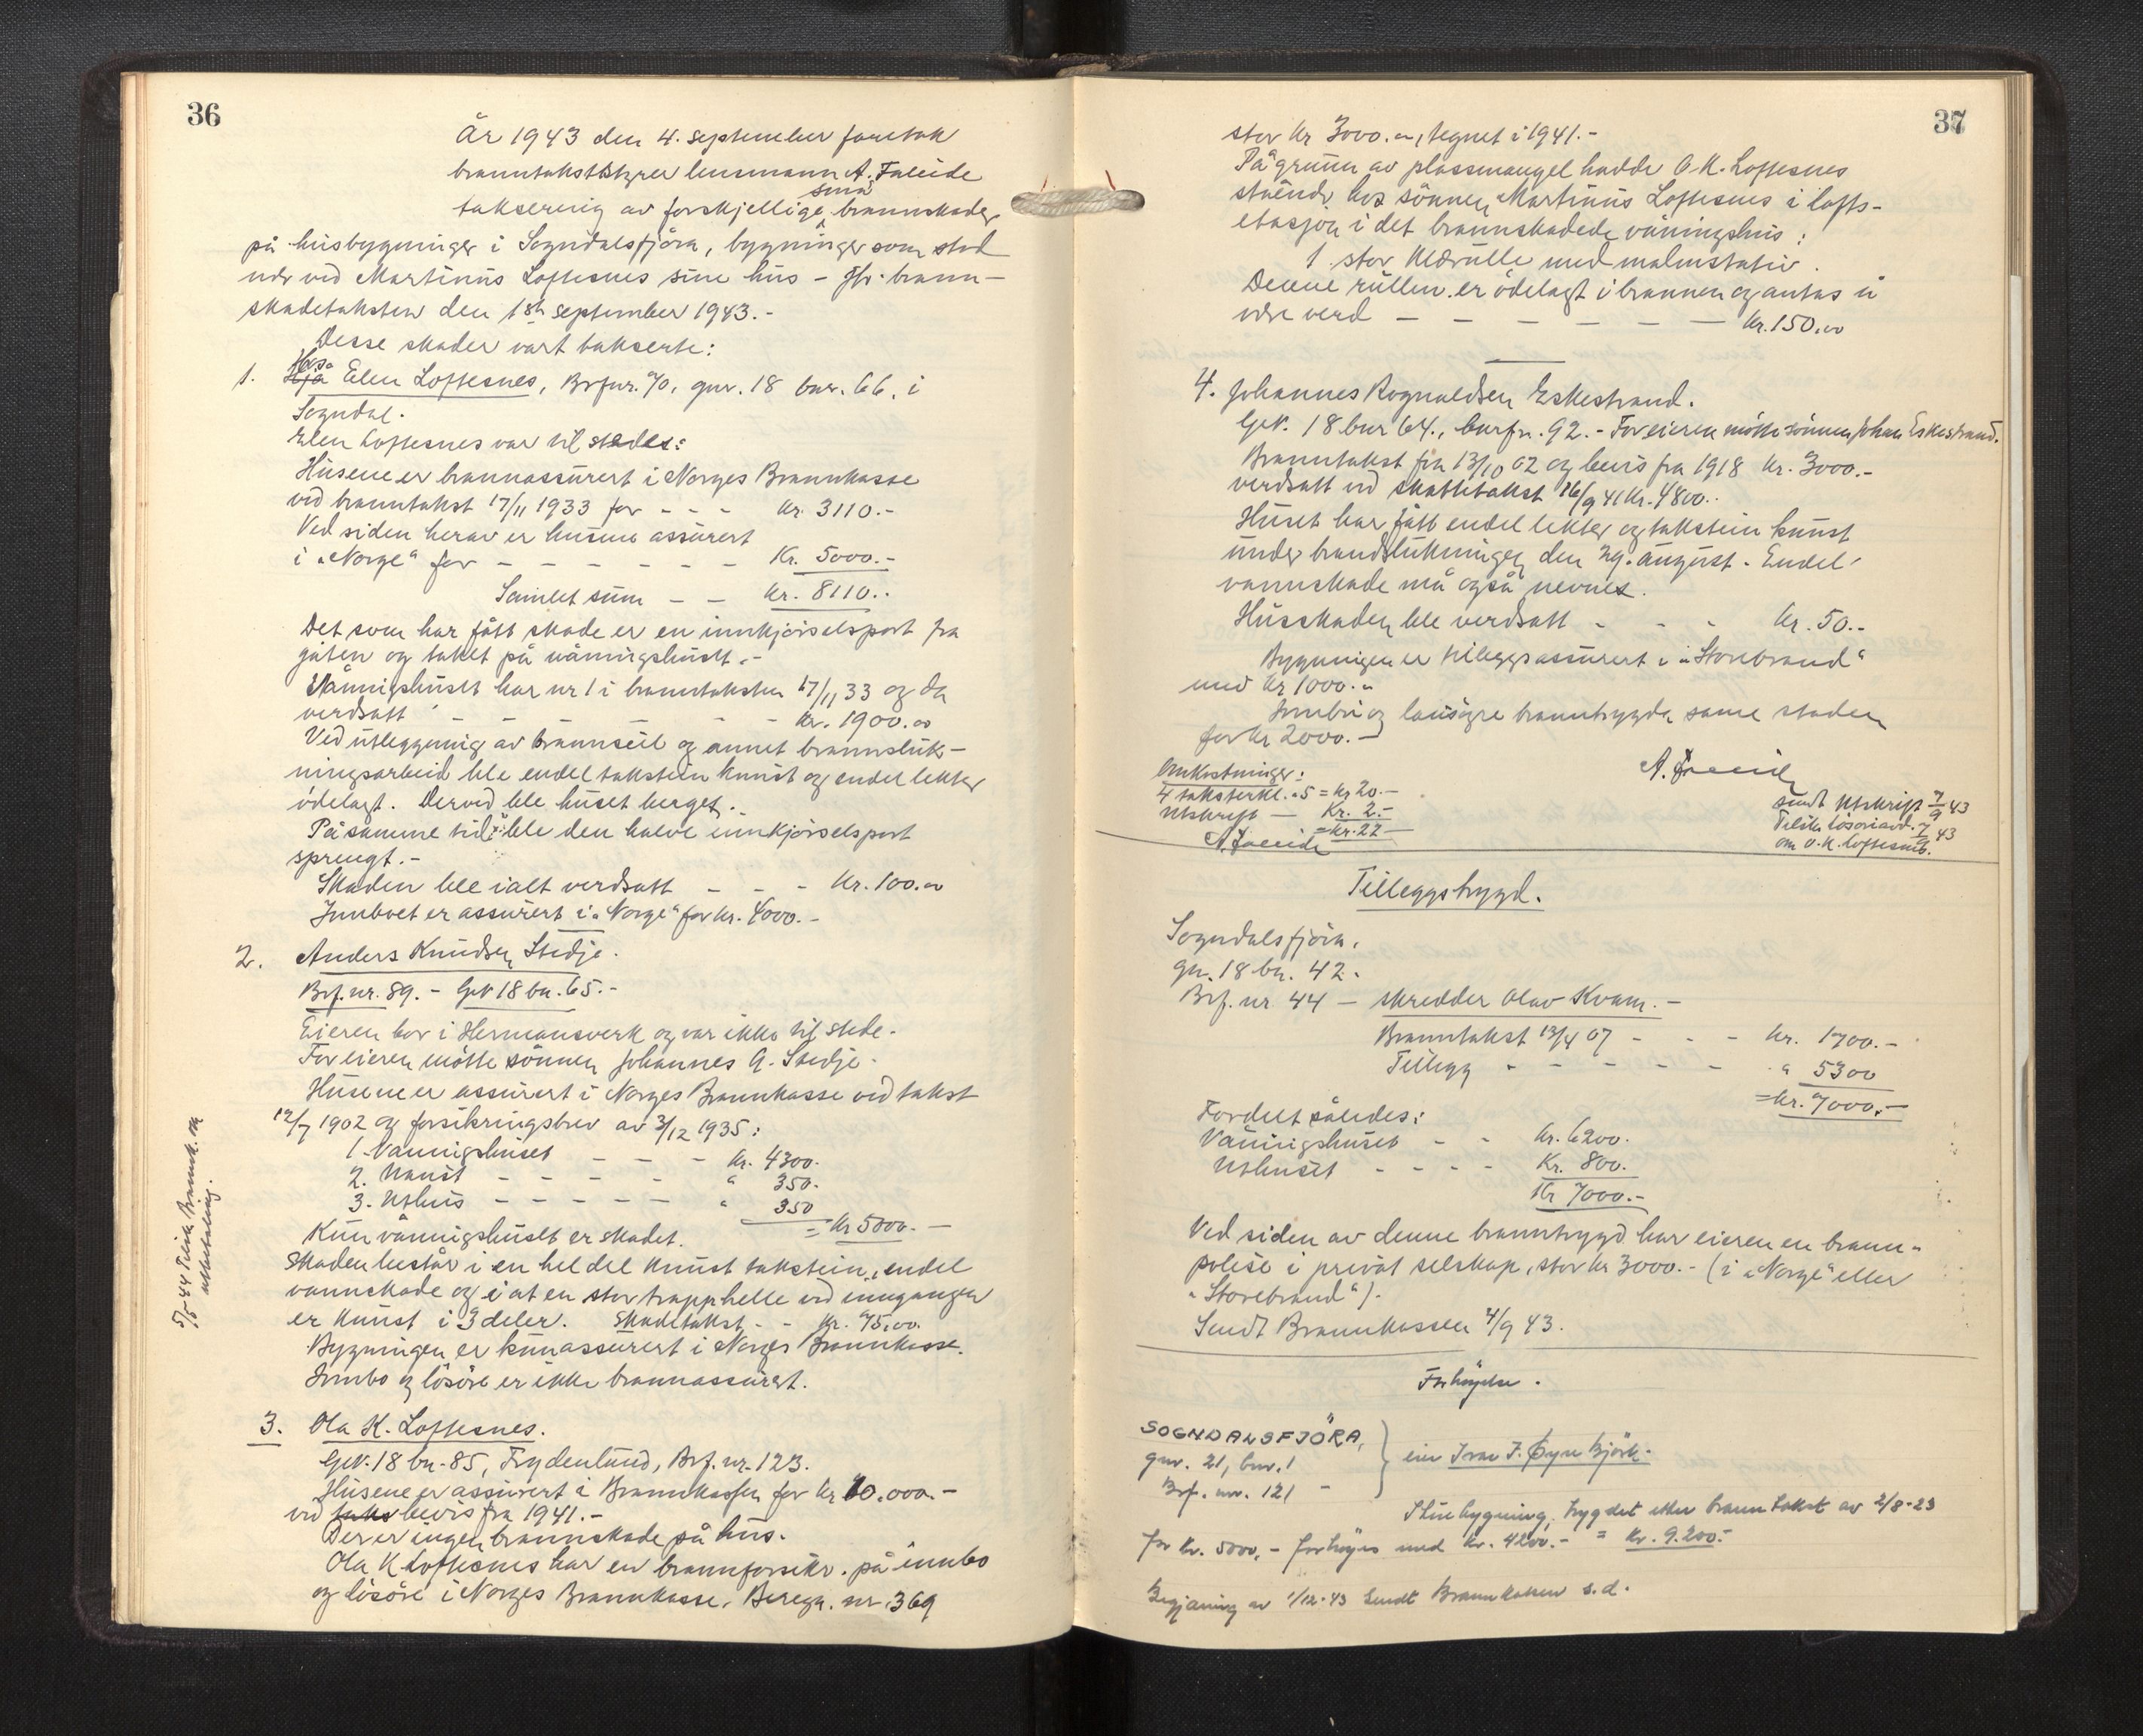 36
År 1943 den 4. september foretok
branntakstbstyrer lensmann A. Faleide
små
taksering av forskjellige brannskader
på husbygninger i Sogndalsfjøra, bygninger som stod
nær ved Martinus Loftesnes sine hus – jfr. brann-
skadetaksten den 1ste september 1943.-
Desse skader vart takserte:
Hos
1. Hjå Elen Loftesnes, Brfnr. 70, gnr. 18 bnr. 66, i
Sogndal.
Elen Loftesnes var til stedes:
Husene er brannassurert i Norges Brannkasse
ved branntakst 17/11 1933 for - - - kr. 3110.-
Ved siden herav er husene assurert
i "Norge" for - - - - - - Kr. 5000.-
Samlet sum - - kr. 8110..
Det som har fått skade er en innkjørselsport fra
gaten og taket på våningshuset.-
Våningshuset har nr 1 i branntaksten 17/11 33 og da
verdsatt - - - - - - kr. 1900.oo
Ved utlegging av brannseil og annet brannsluk-
ningsarbeid ble endel takstein knust og endel lekter
ødelagt. Derved ble huset berget.
På samme tid ble den halve innkjørselsport
sprengt.-
Skaden ble ialt verdsatt - - - Kr. 100.oo
Innboet er assurert i "Norge" for kr. 4000.-
2. Anders Knudsen Stedje.
Brf.nr. 89. - Gnr 18 bn. 65.-
Eieren bor i Hermansverk og var ikke til stede.
For eieren møtte sønnen Johannes A. Stedje.
Husene er assurert i Norges Brannkasse ved takst
12/7 1902 og forsikringsbrev av 3/12 1935:
1. Våningshuset - - - kr. 4300.
2. Naust - - - - - " 350.
3. Uthus - - - - - " 350
= Kr 5000.-
Kun våningshuset er skadet.
Skaden består i en hel del knust takstein, endel
vannskade og i at en stor trapphelle ved inngangen
er knust i 3 deler. Skadetakst - - kr. 75.oo.
Bygningen er kun assurert i Norges Brannkasse.
Innbo og løsøre er ikke brannassurert.
5/5 44 Tilsk. Brannk. om
utbetaling.
3. Ola K. Loftesnes.
Gnr. 18 bn. 85, Frydenlund, Brf. nr. 123.
Husene er assurert i Brannkassen for kr 10.000.-
ved takst bevis fra 1941.-
Der er ingen brannskade på hus.
Ola K Loftesnes har en brannforsikr. på innbo
og løsøre i Norges Brannkasse, Beregn. nr. 369
37
stor kr 3000.oo, tegnet i 1941.-
På grunn av plassmangel hadde O. K. Loftesnes
stående hos sønnen Martinus Loftesnes i lofts-
etasjen i det brannskadede våningshus:
1 stor klærulle med malmstativ.
Denne rullen er ødelagt i brannen og antas å
være verd - - - - - - kr. 150.oo
4. Johannes Rognaldsen Eskestrand.
Gnr. 18 bnr 64., brfnr. 92. - For eieren møtte sønnen Johan Eskestrand.
Branntakst fra 13/10 02 og bevis fra 1918 kr. 3000.-
verdsatt ved skattetakst 16/9 41 Kr. 4800..
Huset har fått endel lekter og takstein knust
under brandslukningen den 29. august. Endel
vannskade må også nevnes.
Husskaden ble verdsatt - - - kr. 50.-
Bygningen er tilleggsassurert i "Storebrand"
med kr 1000.-
Innbu og lausøyre branntrygda same staden
for kr 2000.-
A. Faleide
Omkostninger:
4 taksterkl. à 5 = kr 20.-
Utskrift - Kr. 2.-
= kr. 22.-
A. Faleide
sendt utskrift 7/9 43
Tilsk. løsøreavd. 7/9 43
om O. K. Loftesnes.
Tilleggstrygd.
Sogndalsfjøra,
gn. 18 bn. 42.
Brf. nr 44 - skredder Olav Kvam.-
Branntakst 13/4 07 - - - kr. 1700.-
Tillegg - - - - - " 5300
= kr. 7000.-
Fordelt således:
Våningshuset - - kr. 6200.
Uthuset - - - - Kr. 800.
Kr 7000.-
Ved siden av denne branntrygd har eieren en brann-
polise i privat selskap, stor kr 3000.- (i "Norge" eller
"Storebrand").
Sendt Brannkassen 4/9 43.
Forhøyelse.
SOGNDALSFJÖRA,
gnr. 21, bnr. 1
Brf. nr. 121 -
eier Ivar J. Øyre Bjørk.
Stuebygning, trygdet etter branntakst av 2/8-23
for kr. 5000,- forhøyes med kr. 4200.- = kr. 9.200.-
Begjæring av 1/12-43 sendt Brannkassen s.d.